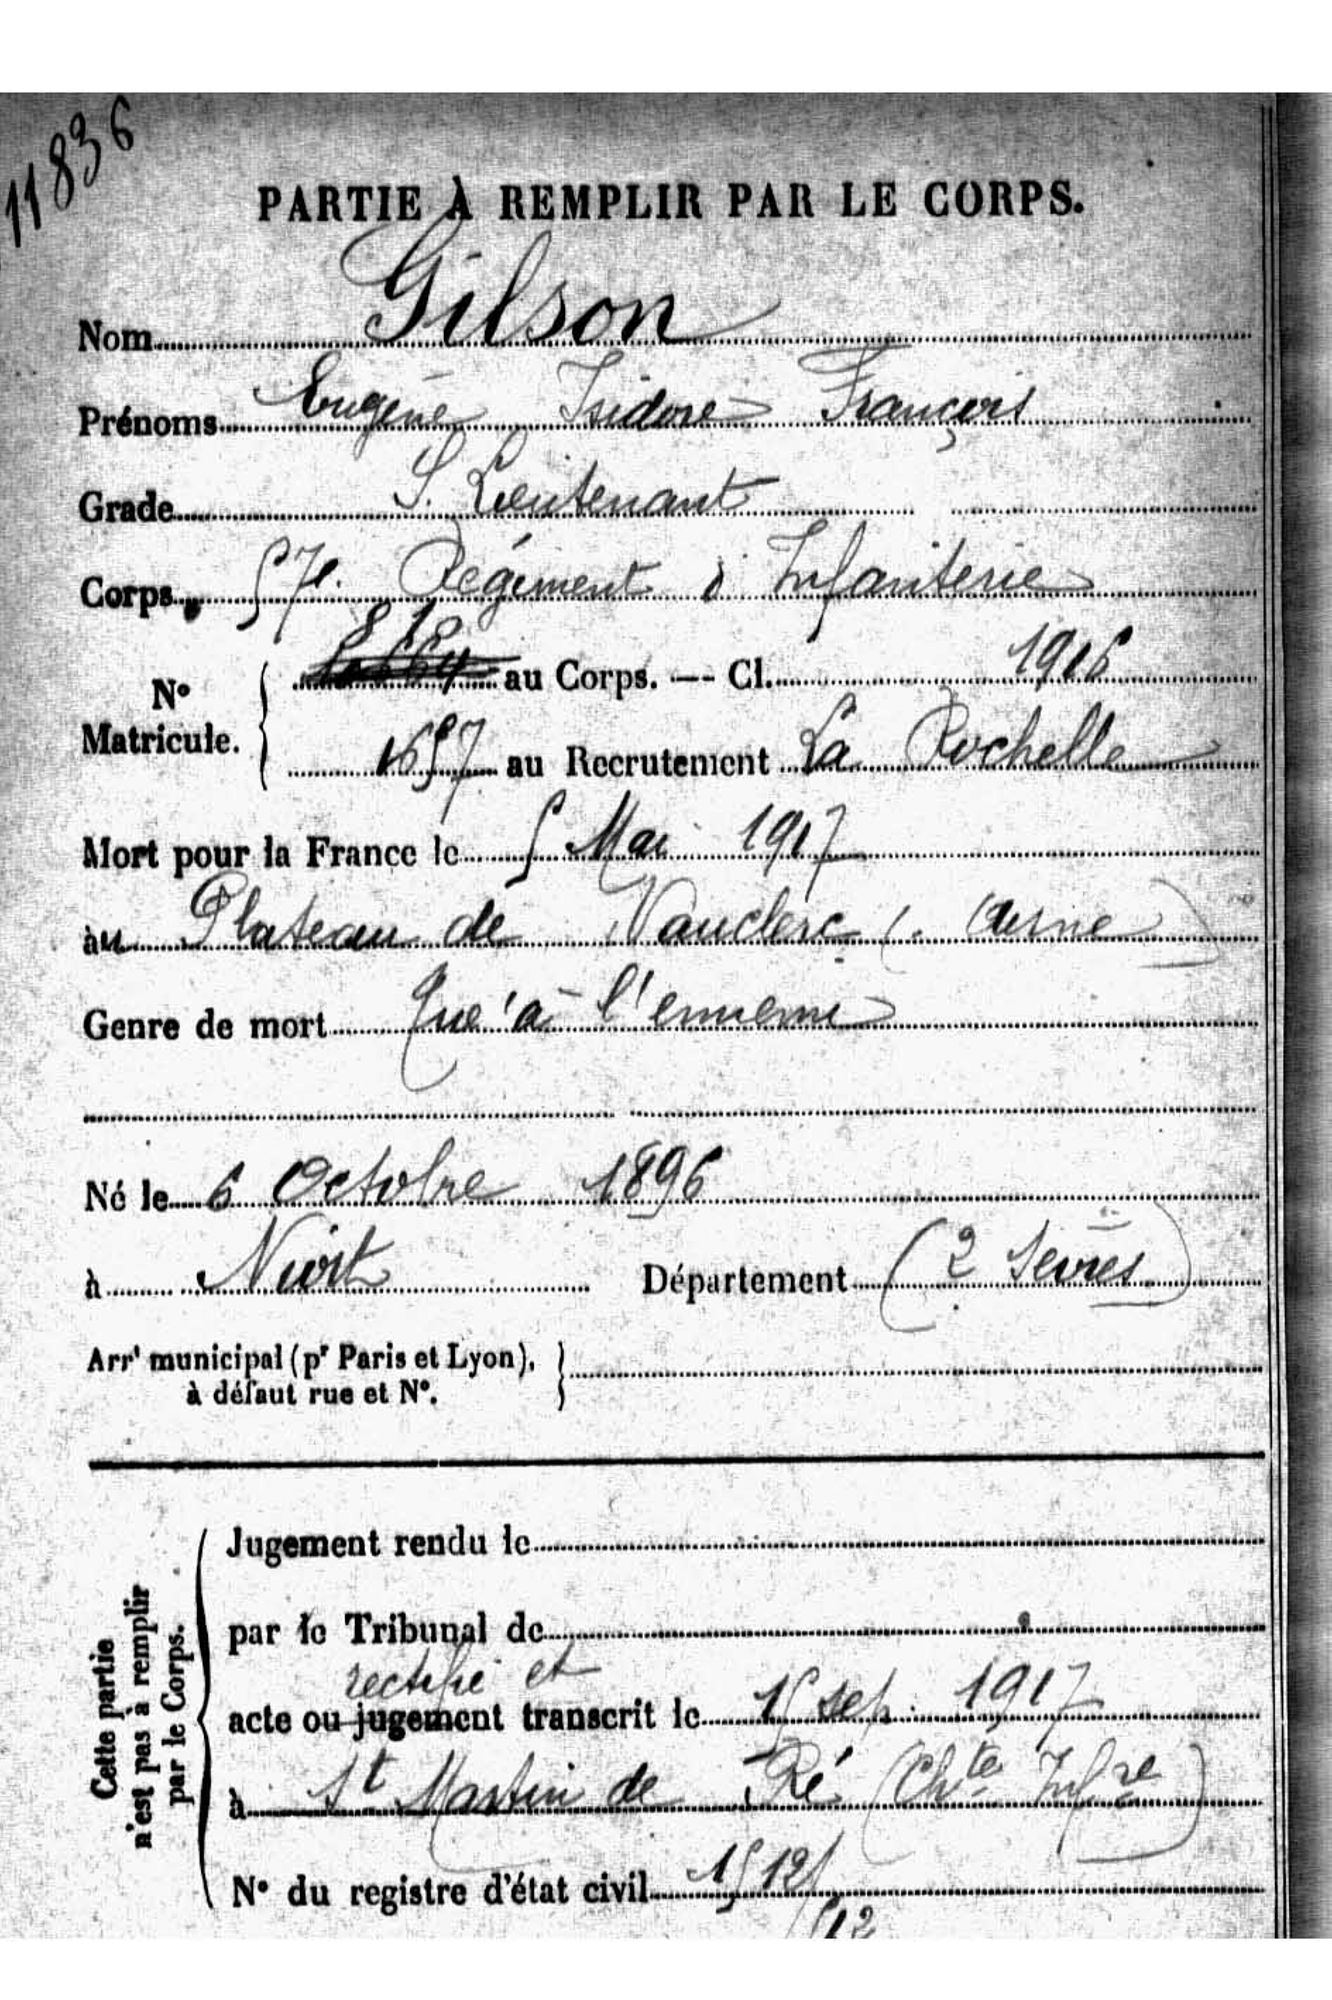 11836
PARTIE À REMPLIR PAR LE CORPS.
Nom Gilson
Prénoms Eugène Isidore François
Grade S. Lieutenant
Corps 57e. Régiment d' Infanterie
818
N° Matricule. { au Corps. — Cl. 1916
1657 au Recrutement La Rochelle
Mort pour la France le 5 Mai 1917
àu Plateau de Vauclerc (Aisne)
Genre de mort Tué à l'ennemi
Né le 6 Octobre 1896
à Niort Département (2 Sèvres)
Arrt municipal (pr Paris et Lyon),
à défaut rue et N°.
Cette partie n'est pas à remplir par le Corps.
Jugement rendu le
par le Tribunal de
rectifié et
acte ou jugement transcrit le 15 sep. 1917
à St Martin de Ré (Chte Infre)
N° du registre d'état civil